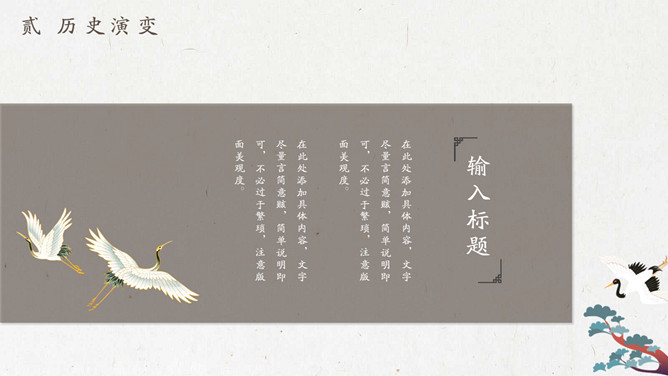 贰 历史演变
输入标题
在此处添加具体内容，文字
尽量言简意赅，简单说明即
可，不必过于繁琐，注意版
面美观度。
在此处添加具体内容，文字
尽量言简意赅，简单说明即
可，不必过于繁琐，注意版
面美观度。